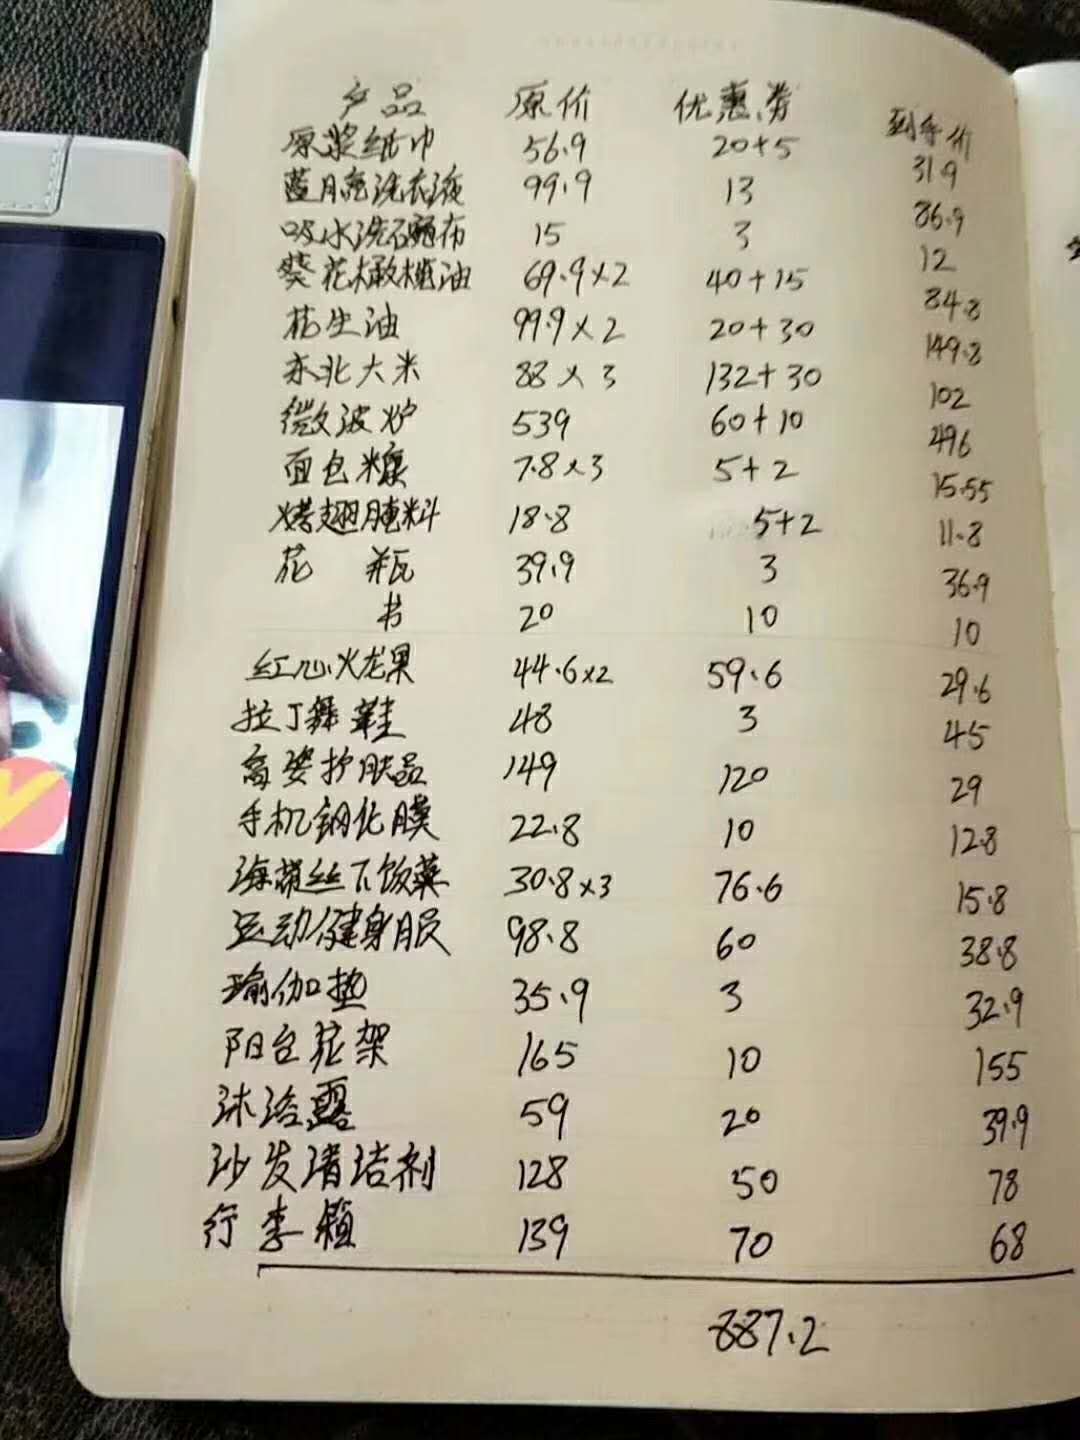 产品 原价 优惠券 到手价
原浆纸巾 56.9 20+5 31.9
蓝月亮洗衣液 99.9 13 86.9
吸水洗碗布 15 3 12
葵花橄榄油 69.9×2 40+15 84.8
花生油 99.9×2 20+30 149.8
东北大米 88×3 132+30 102
微波炉 539 60+10 496
面包糠 7.8×3 5+2 15.55
烤翅腌料 18.8 5+2 11.8
花瓶 39.9 3 36.9
书 20 10 10
红心火龙果 44.6×2 59.6 29.6
拉丁舞鞋 48 3 45
高姿护肤品 149 120 29
手机钢化膜 22.8 10 12.8
海带丝下饭菜 30.8×3 76.6 15.8
运动健身服 98.8 60 38.8
瑜伽垫 35.9 3 32.9
阳台花架 165 10 155
沐浴露 59 20 39.9
沙发清洁剂 128 50 78
行李箱 139 70 68
887.2